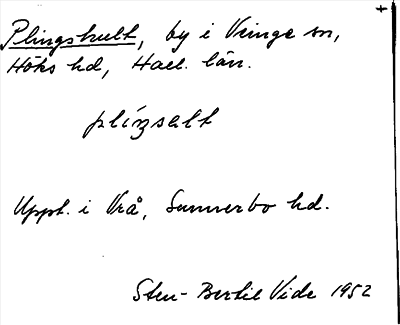 Plingshult, by i Veinge sn,
Höks hd, Hall. län.
plíŋsəlt
Uppt. i Vrå, Sunnerbo hd.
Sten-Bertil Vide 1952